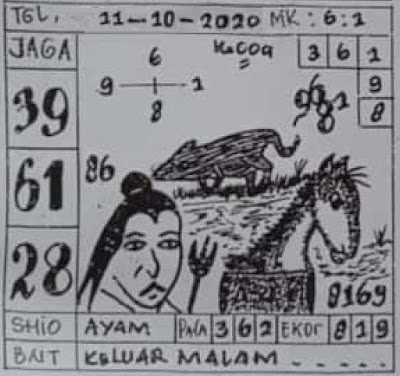 TGL, 11-10-2020 MK: 6:1
JAGA 6 KECOA 3 6 1
9 1 9
39 8 9681 8
61 86
28 8169
SHIO AYAM PALA 3 6 2 EKOR 8 1 9
BAIT KELUAR MALAM - - - - -